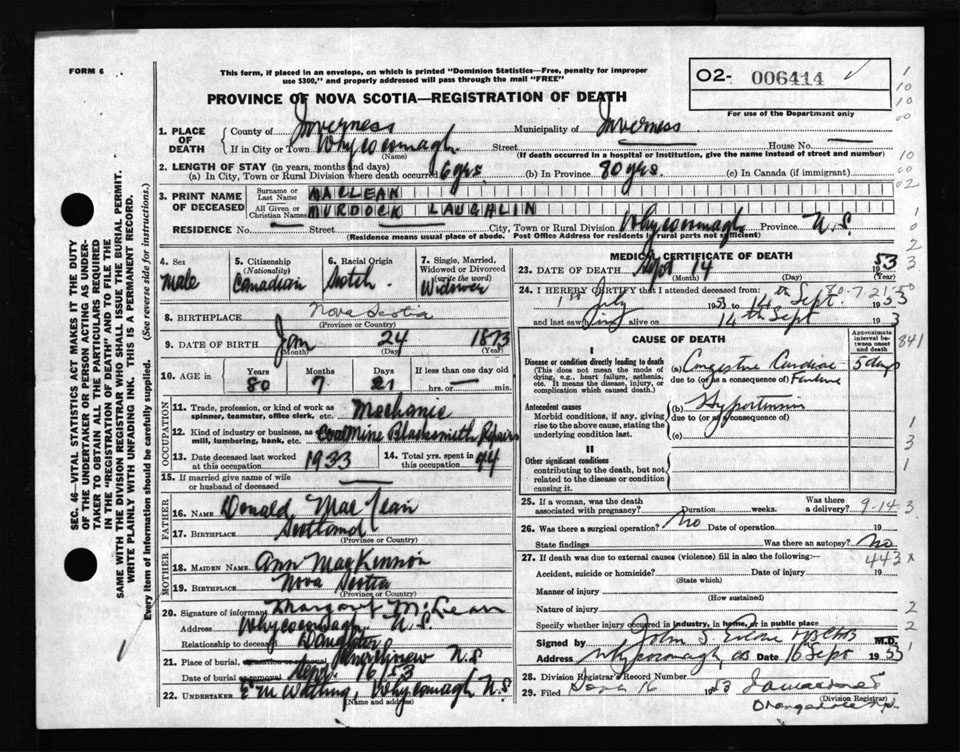 FORM 6
This form, if placed in an envelope, on which is printed "Dominion Statistics—Free, penalty for improper
use $300," and properly addressed will pass through the mail "FREE"
02- 006414
For use of the Department only
PROVINCE OF NOVA SCOTIA—REGISTRATION OF DEATH
1. PLACE OF DEATH
County of Inverness Municipality of Inverness
If in City or Town Whycocomagh Street House No.
(Name) (If death occurred in a hospital or institution, give the name instead of street and number)
2. LENGTH OF STAY (in years, months and days)
(a) In City, Town or Rural Division where death occurred 6 yrs. (b) In Province 80 yrs. (c) In Canada (if immigrant)
3. PRINT NAME OF DECEASED
Surname or Last Name MACLEAN
All Given or Christian Names MURDOCK LAUGHLIN
RESIDENCE No. Street City, Town or Rural Division Whycocomagh Province N.S.
(Residence means usual place of abode. Post Office Address for residents in rural parts not sufficient)
4. Sex
Male
5. Citizenship
(Nationality)
Canadian
6. Racial Origin
Scotch
7. Single, Married,
Widowed or Divorced
(write the word)
Widower
8. BIRTHPLACE Nova Scotia
(Province or Country)
9. DATE OF BIRTH Jan 24 1873
(Month) (Day) (Year)
10. AGE in
Years Months Days If less than one day old
80 7 21 hrs. or min.
OCCUPATION
11. Trade, profession, or kind of work as
spinner, teamster, office clerk, etc. Mechanic
12. Kind of industry or business, as
mill, lumbering, bank, etc. Coal Mine Blacksmith Repairs
13. Date deceased last worked
at this occupation 1933
14. Total yrs. spent in
this occupation 44
15. If married give name of wife
or husband of deceased
FATHER
16. Name Donald MacLean
17. Birthplace Scotland
(Province or Country)
MOTHER
18. Maiden Name Ann MacKinnon
19. Birthplace Nova Scotia
(Province or Country)
20. Signature of informant Margaret McLean
Address Whycocomagh N.S.
Relationship to deceased Daughter
21. Place of burial, cremation or removal N.S.
Date of burial or removal Sept. 16 - 53
22. UNDERTAKER Whycocomagh N.S.
(Name and address)
MEDICAL CERTIFICATE OF DEATH
23. DATE OF DEATH Sept 14 1953
(Month) (Day) (Year)
24. I HEREBY CERTIFY that I attended deceased from:
80-7-21
1st July 1953 to 14th Sept. 1953
and last saw him alive on 14th Sept 1953
CAUSE OF DEATH
Approximate interval between onset and death
841
I
Disease or condition directly leading to death
(This does not mean the mode of
dying, e.g., heart failure, asthenia,
etc. It means the disease, injury, or
complication which caused death.)
(a) Congestive Cardiac 5 days
due to (or as a consequence of) Failure
Antecedent causes
Morbid conditions, if any, giving
rise to the above cause, stating the
underlying condition last.
(b) Hypertension
due to (or as consequence of)
(c)
II
Other significant conditions
contributing to the death, but not
related to the disease or condition
causing it.
25. If a woman, was the death
associated with pregnancy? Duration weeks. Was there a delivery? 9-14-3
26. Was there surgical operation? No Date of operation 19
State findings Was there an autopsy? No
27. If death was due to external causes (violence) fill in also the following:— 443 x
Accident, suicide or homicide? Date of injury 19
(State which)
Manner of injury
(How sustained)
Nature of injury
Specify whether injury occurred in industry, in home, or in public place
Signed by John S. M.D.
Address Whycocomagh Date 16 Sept 1953
28. Division Registrar's Record Number
29. Filed 16 1953
(Division Registrar)
Orangedale N.S.
SEC. 46—VITAL STATISTICS ACT MAKES IT THE DUTY
OF THE UNDERTAKER OR PERSON ACTING AS UNDER-
TAKER TO OBTAIN ALL THE PARTICULARS REQUIRED
IN THE "REGISTRATION OF DEATH" AND TO FILE THE
SAME WITH THE DIVISION REGISTRAR WHO SHALL ISSUE THE BURIAL PERMIT.
WRITE PLAINLY WITH UNFADING INK. THIS IS A PERMANENT RECORD.
Every item of Information should be carefully supplied. (See reverse side for instructions.)